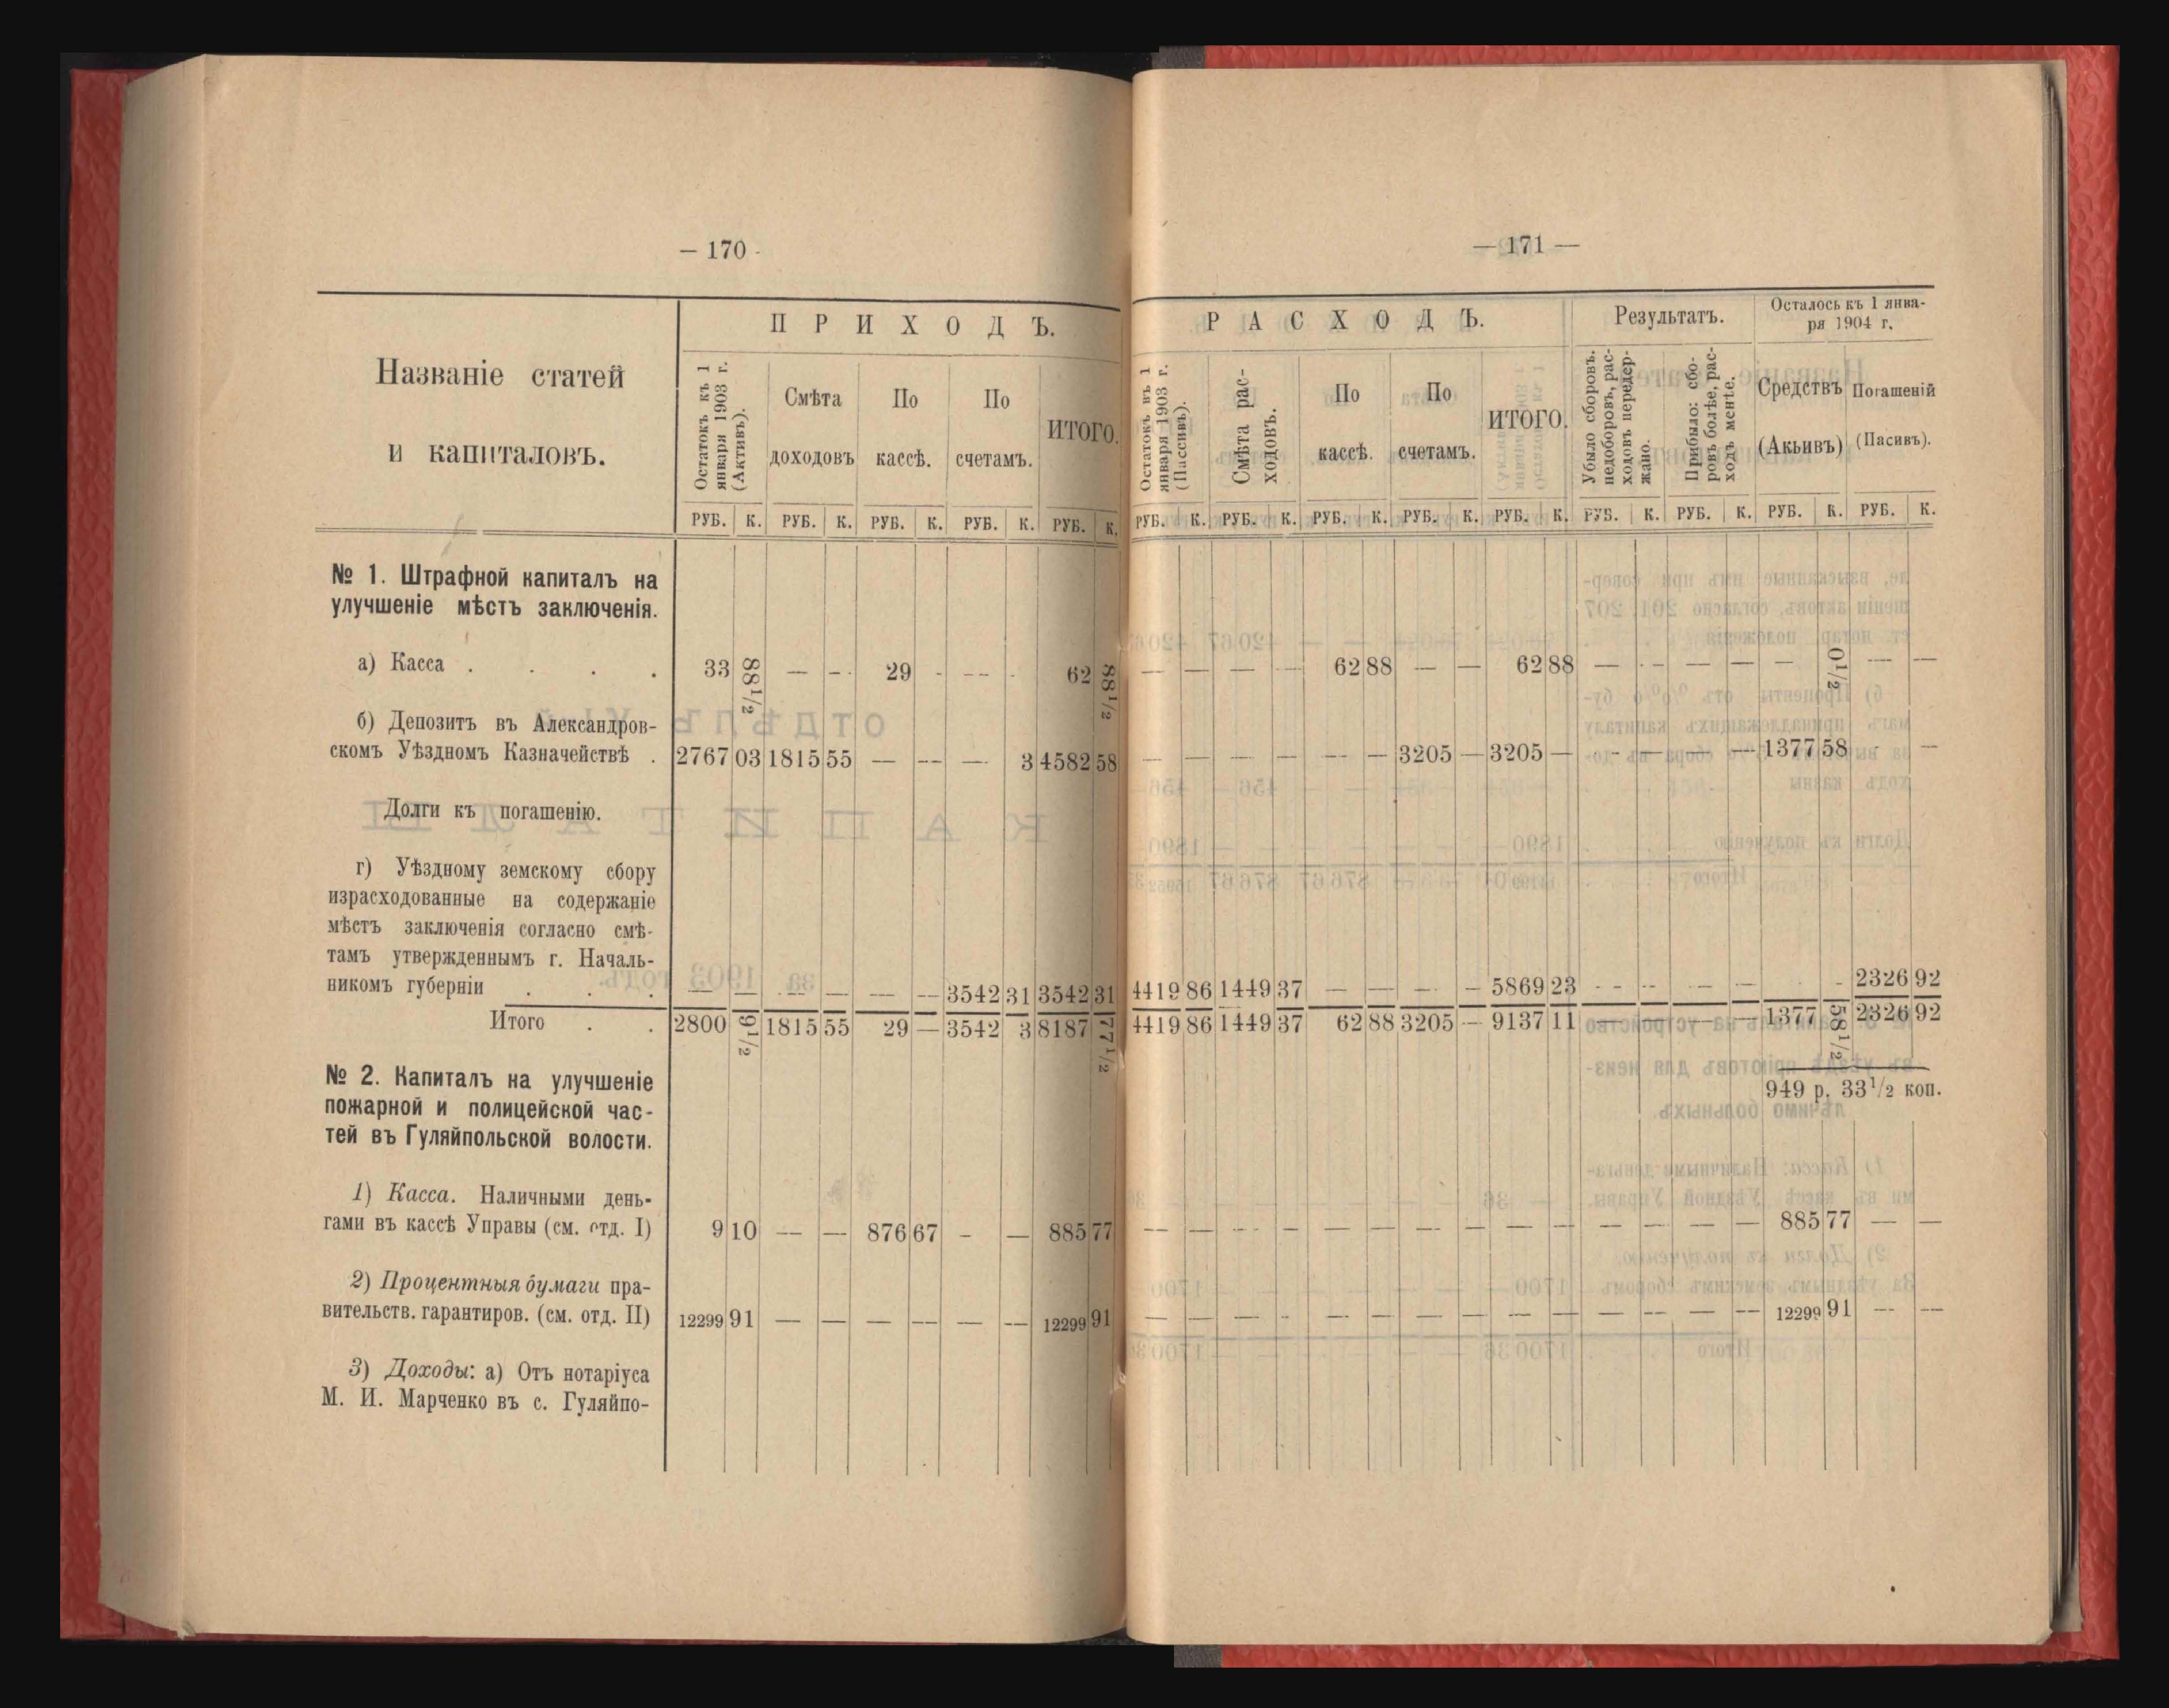 — 170 -
П Р И Х О Д Ъ.
Названіе статей
и капиталовъ.
Остатокъ къ 1
января 1903 г.
(Активъ).
Смѣта
доходовъ
По
кассѣ.
По
счетамъ.
ИТОГО.
РУБ. К. РУБ. К. РУБ. К. РУБ. К. РУБ. К.
№ 1. Штрафной капиталъ на
улучшеніе мѣстъ заключенія.
а) Касса . . . . 33 88½ — - 29 - -- - 62 88½
б) Депозитъ въ Александров-
скомъ Уѣздномъ Казначействѣ . 2767 03 1815 55 — -- — 3 4582 58
Долги къ погашенію.
г) Уѣздному земскому сбору
израсходованные на содержаніе
мѣстъ заключенія согласно смѣ-
тамъ утвержденнымъ г. Началь-
никомъ губерніи . . . — — — — — — 3542 31 3542 31
Итого . . 2800 91½ 1815 55 29 — 3542 3 8187 77½
№ 2. Капиталъ на улучшеніе
пожарной и полицейской час-
тей въ Гуляйпольской волости.
1) Касса. Наличными день-
гами въ кассѣ Управы (см. отд. I) 9 10 — — 876 67 - — 885 77
2) Процентныя бумаги пра-
вительств. гарантиров. (см. отд. II) 12299 91 — — — — — — 12299 91
3) Доходы: а) Отъ нотаріуса
М. И. Марченко въ с. Гуляйпо-
— 171 —
Р А С Х О Д Ъ.
Результатъ.
Осталось къ 1 янва-
ря 1904 г.
Остатокъ въ 1
января 1903 г.
(Пассивъ).
Смѣта рас-
ходовъ.
По
кассѣ.
По
счетамъ.
ИТОГО.
Убыло сборовъ.
недоборовъ, рас-
ходовъ передер-
жано.
Прибыло: сбо-
ровъ болѣе, рас-
ходъ менѣе.
Средствъ
(Акьивъ)
Погашеній
(Пасивъ).
РУБ. К. РУБ. К. РУБ. К. РУБ. К. РУБ. К. РУБ. К. РУБ. К. РУБ. К. РУБ. К.
— — — — 62 88 — — 62 88 — - — — — 0½ — —
— — — — -- — 3205 — 3205 — - — — — 1377 58 - —
4419 86 1449 37 — — — - 5869 23 - - — — - - 2326 92
4419 86 1449 37 62 88 3205 — 9137 11 — — — — 1377 58½ 2326 92
949 р. 33½ коп.
— — — — — — — — — — — — — — 885 77 — —
— — — - — — — — — — — — — — 12299 91 — —